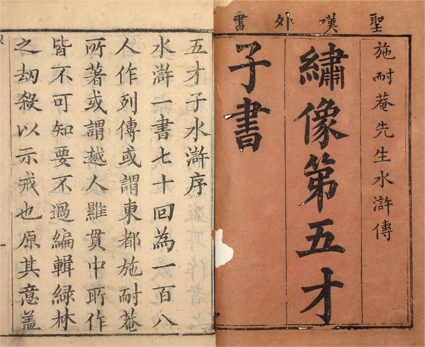 聖嘆外書
施耐菴先生水滸傳
繡像第五才
子書
五才子水滸序
水滸一書七十回為一百八
人作列傳或謂東都施耐菴
所著或謂越人羅貫中所作
皆不可知要不過編輯綠林
之刼殺以示戒也原其意蓋